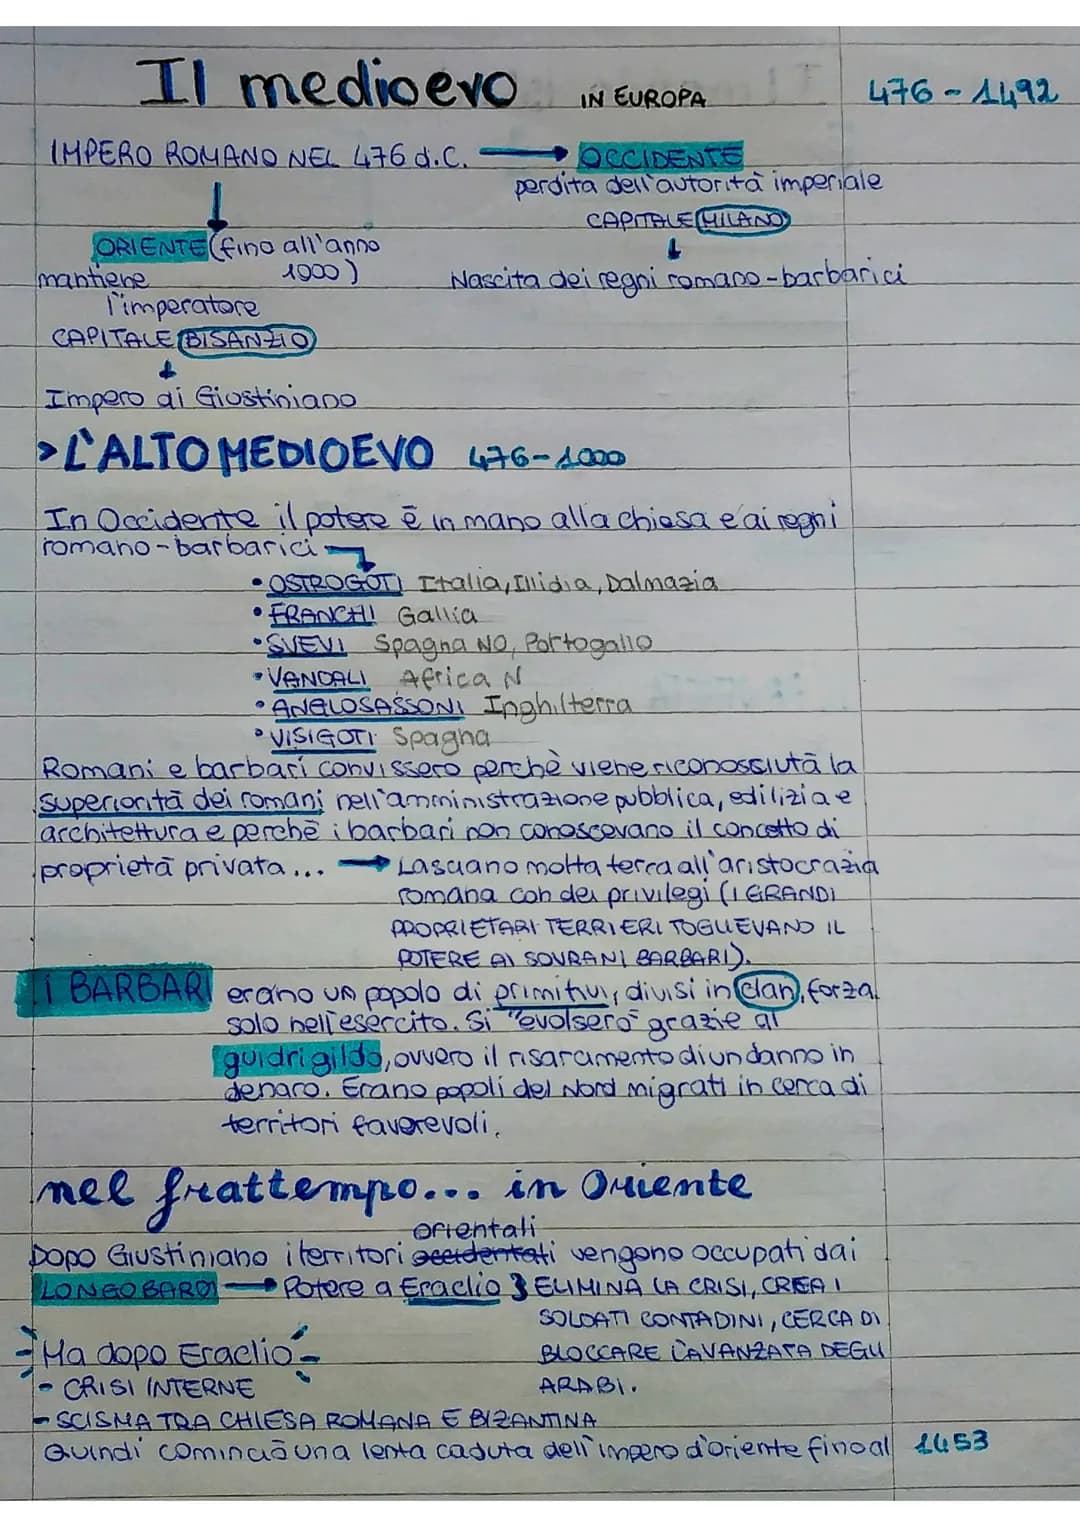 Il medioevo IN EUROPA 476-1492
IMPERO ROMANO NEL 476 d.C. → OCCIDENTE
perdita dell'autorità imperiale
CAPITALE MILANO
ORIENTE (fino all'anno 1000)
mantiene
l'imperatore
CAPITALE BISANZIO
Nascita dei regni romano-barbarici
Impero di Giustiniano
>L'ALTO MEDIOEVO 476-1000
In Occidente il potere è in mano alla chiesa e ai regni
romano-barbarici
• OSTROGOTI Italia, Illidia, Dalmazia
• FRANCHI Gallia
• SVEVI Spagna NO, Portogallo
• VANDALI Africa N
• ANGLOSASSONI Inghilterra
• VISIGOTI Spagna
Romani e barbari convissero perchè viene riconossiuta la
superiorità dei romani nell'amministrazione pubblica, edilizia e
architettura e perchè i barbari non conoscevano il concetto di
proprietà privata... → Lasciano molta terra all'aristocrazia
romana con dei privilegi (I GRANDI
PROPRIETARI TERRIERI TOGLIEVANO IL
POTERE AI SOVRANI BARBARI).
I BARBARI erano un popolo di primitivi, divisi in clan, forza
solo nell'esercito. Si "evolsero" grazie al
guidrigildo, ovvero il risarcimento di un danno in
denaro. Erano popoli del Nord migrati in cerca di
territori favorevoli.
nel frattempo... in Oriente
orientali
DOPO Giustiniano i territori occidentali vengono occupati dai
LONGOBARDI → Potere a Eraclio } ELIMINA LA CRISI, CREA I
SOLDATI CONTADINI, CERCA DI
BLOCCARE L'AVANZATA DEGLI
ARABI.
Ma dopo Eraclio
- CRISI INTERNE
- SCISMA TRA CHIESA ROMANA E BIZANTINA
Quindi cominciò una lenta caduta dell'impero d'oriente fino al 1453